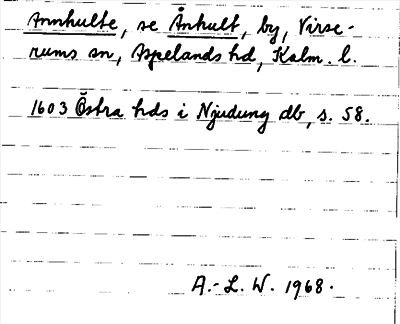 Annhulte, se Ånhult, by, Virse-
rums sn, Aspelands hd, Kalm. l.
1603 Östra hds i Njudung db, s. 58.
A.-L. W. 1968.